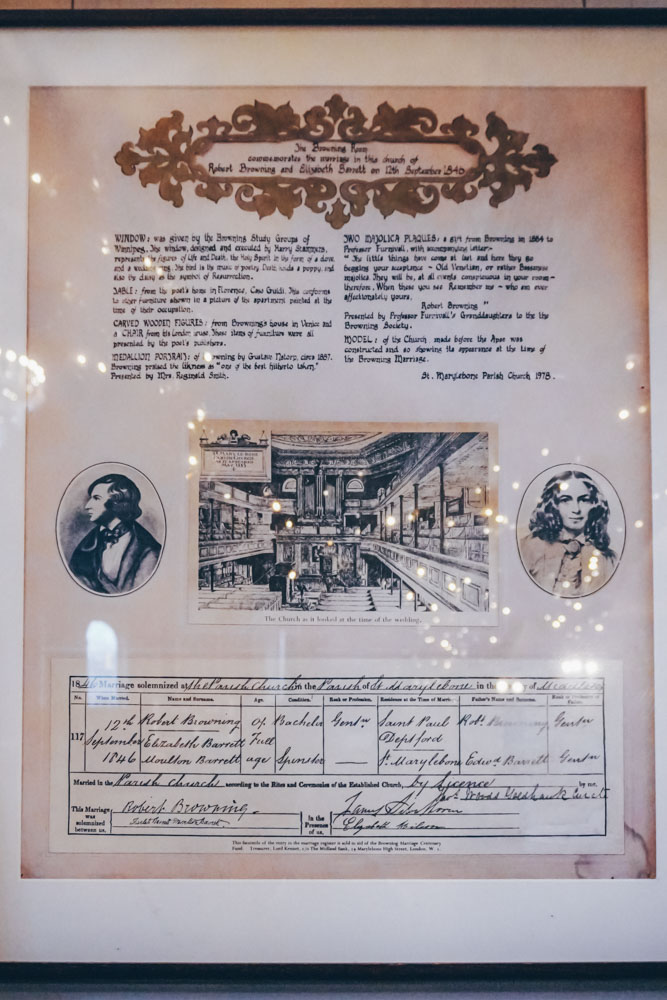 The Browning Room
commemorates the marriage in this church of
Robert Browning and Elizabeth Barrett on 12th September 1846
WINDOW: was given by the Browning Study Groups of
Winnipeg. The window, designed and executed by Harry Stammers,
represents the figures of Life and Death, the Holy Spirit in the form of a dove,
and a wedding ring. The bird is the music of poetry. Death holds a poppy, and
also the daisy as the symbol of Resurrection.
TABLE: from the poet's home in Florence, Casa Guidi. This conforms
to other furniture shown in a picture of the apartment painted at the
time of their occupation.
CARVED WOODEN FIGURES: from Browning's house in Venice and
a CHAIR from his London house. These items of furniture were all
presented by the poet's publishers.
MEDALLION PORTRAIT: of Browning by Gustav Natorp, circa 1887.
Browning praised the likeness as "one of the best hitherto taken."
Presented by Mrs. Reginald Smith.
TWO MAJOLICA PLAQUES: a gift from Browning in 1884 to
Professor Furnivall, with accompanying letter-
"The little things have come at last and here they go
begging your acceptance - Old Venetian, or rather Bassanese
majolica. They will be, at all events conspicuous in your room-
therefore. When these you see Remember me - who am ever
affectionately yours,
Robert Browning"
Presented by Professor Furnivall's Granddaughters to the the
Browning Society.
MODEL: of the Church, made before the Apse was
constructed and so showing its appearance at the time of
the Browning Marriage.
St. Marylebone Parish Church 1978.
The Church as it looked at the time of the wedding.
1846 Marriage solemnized at the Parish Church in the Parish of St Marylebone in the County of Middlesex
No. When Married. Name and Surname. Age. Condition. Rank or Profession. Residence at the Time of Marriage. Father's Name and Surname. Rank or Profession of Father.
12th Robert Browning of Bachelor Gentn Saint Paul Robt Browning Gentn
117 September Elizabeth Barrett Full Deptford
1846 Moulton Barrett age Spinster — St Marylebone Edwd Barrett Gentn
Married in the Parish Church according to the Rites and Ceremonies of the Established Church, by Licence by me,
This Marriage was solemnized between us, Robert Browning
In the Presence of us, James Silverthorne
Elizabeth Wilson
This facsimile of the entry in the marriage register is sold in aid of the Browning Marriage Centenary
Fund. Treasurer, Lord Kennet, c/o The Midland Bank, High Street, London, W. 1.